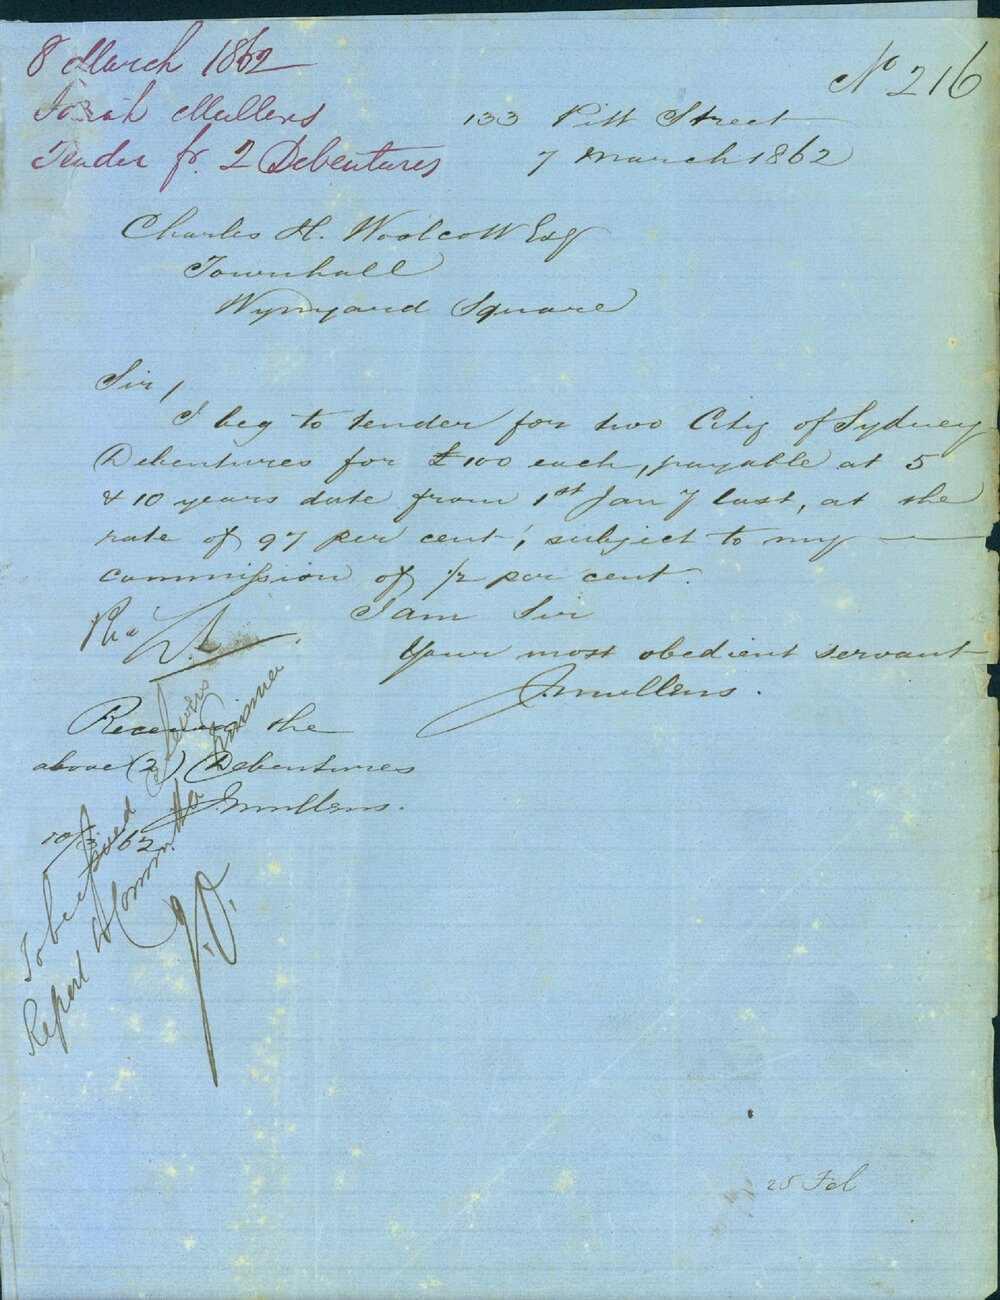 8 March 1862
Josiah Mullens
Tender fr. 2 Debentures
No 216
133 Pitt Street
7 March 1862
Charles H. Woolcott Esq
Townhall
Wynyard Square
Sir /
I beg to tender for two City of Sydney
Debentures for £100 each, payable at 5
& 10 years date from 1st Jany last, at the
rate of 97 per cent, subject to my
commission of 1/2 per cent.
I am Sir
Your most obedient servant
J Mullens.
Received the
above (2) Debentures
J Mullens.
10/3/62
To be issued
Report to Committee
25 Feb